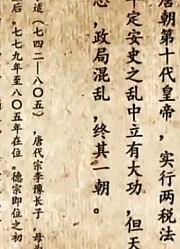 唐朝第十代皇帝，实行两税法
平定安史之乱中立有大功，但天
忌，政局混乱，终其一朝。
适（七四二—八〇五），唐代宗李豫长子，母
后，七七九年至八〇五年在位。德宗即位之初